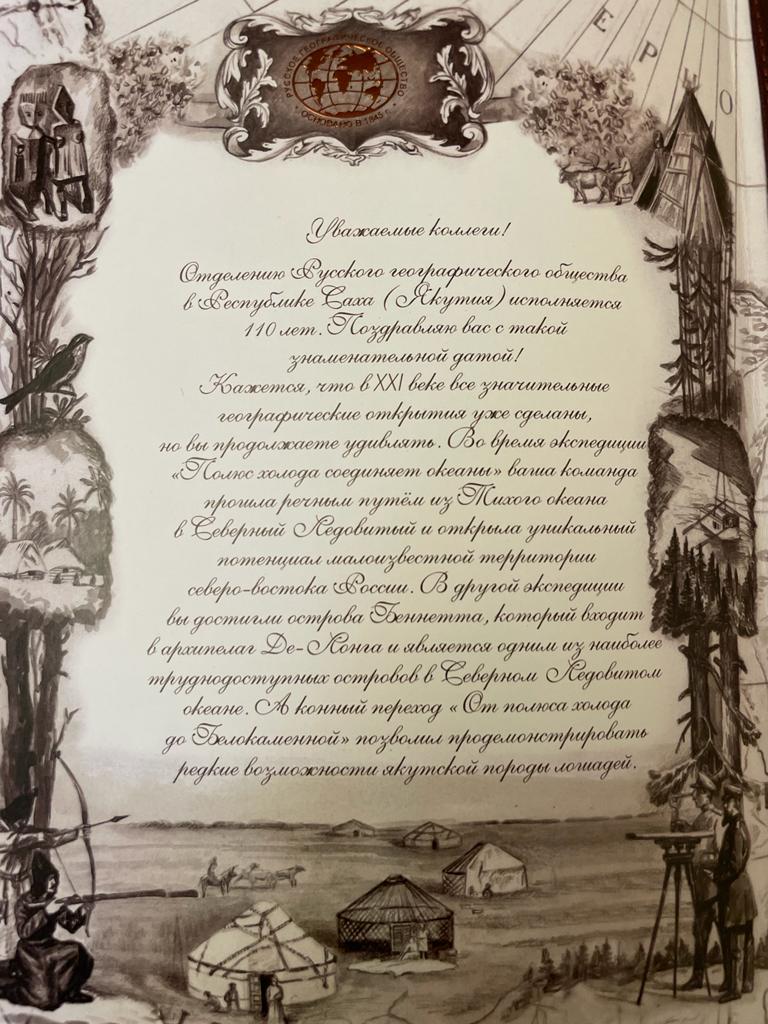 РУССКОЕ ГЕОГРАФИЧЕСКОЕ ОБЩЕСТВО
ОСНОВАНО В 1845 г.
Е Р О
Уважаемые коллеги!
Отделению Русского географического общества
в Республике Саха (Якутия) исполняется
110 лет. Поздравляю вас с такой
знаменательной датой!
Кажется, что в XXI веке все значительные
географические открытия уже сделаны,
но вы продолжаете удивлять. Во время экспедиции
«Полюс холода соединяет океаны» ваша команда
прошла речным путём из Тихого океана
в Северный Ледовитый и открыла уникальный
потенциал малоизвестной территории
северо-востока России. В другой экспедиции
вы достигли острова Беннетта, который входит
в архипелаг Де-Лонга и является одним из наиболее
труднодоступных островов в Северном Ледовитом
океане. А конный переход «От полюса холода
до Белокаменной» позволил продемонстрировать
редкие возможности якутской породы лошадей.